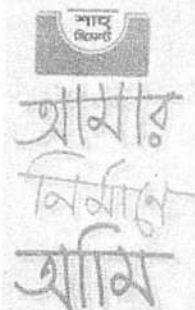 শাহ্
সিমেন্ট
আমার
নির্মানে
আমি